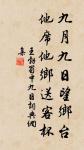 九月九日望鄉台
他席他鄉送客杯
王勃蜀中九日詩典
集